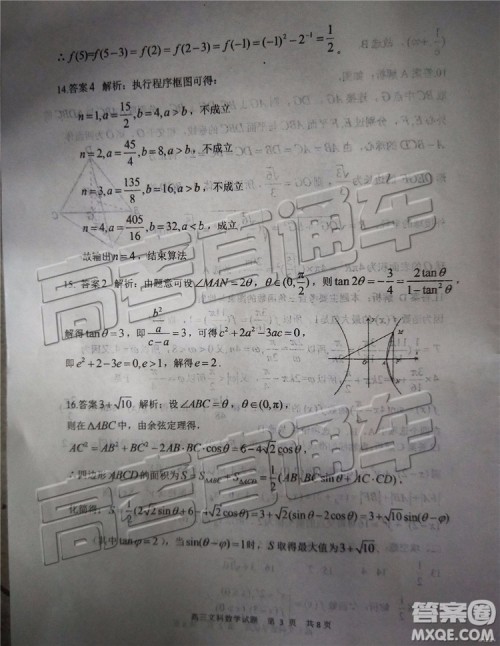 ∴ f(5)=f(5−3)=f(2)=f(2−3)=f(−1)=(−1)²−2⁻¹=1/2。
14.答案4 解析：执行程序框图可得：
n=1,a=15/2,b=4,a>b，不成立
n=2,a=45/4,b=8,a>b，不成立
n=3,a=135/8,b=16,a>b，不成立
n=4,a=405/16,b=32,a<b，成立
故输出n=4，结束算法
15. 答案2 解析：由题意可设∠MAN=2θ，θ∈(0,π/2)，则tan2θ=−3/4=2tanθ/(1−tan²θ)，
解得tanθ=3，即 (b²/a)/(c−a)=3，可得c²+2a²−3ac=0，
即e²+2−3e=0,e>1，解得e=2．
16.答案3+√10 解析：设∠ABC=θ，θ∈(0,π)，
则在△ABC中，由余弦定理得．
AC²=AB²+BC²−2AB·BC·cosθ=6−4√2cosθ，
∴四边形ABCD的面积为S=S△ABC+S△ACD=1/2(AB·BCsinθ+AC·CD)，
S=1/2(2√2sinθ+6−4√2cosθ)=3+√2(sinθ−2cosθ)=3+√10sin(θ−φ)
(其中tanφ=2)，当sin(θ−φ)=1时，S取得最大值为3+√10．
高三文科数学试题 第 3 页 共 8 页
高考直通车
高考直通车
答案圈
MXQE.COM